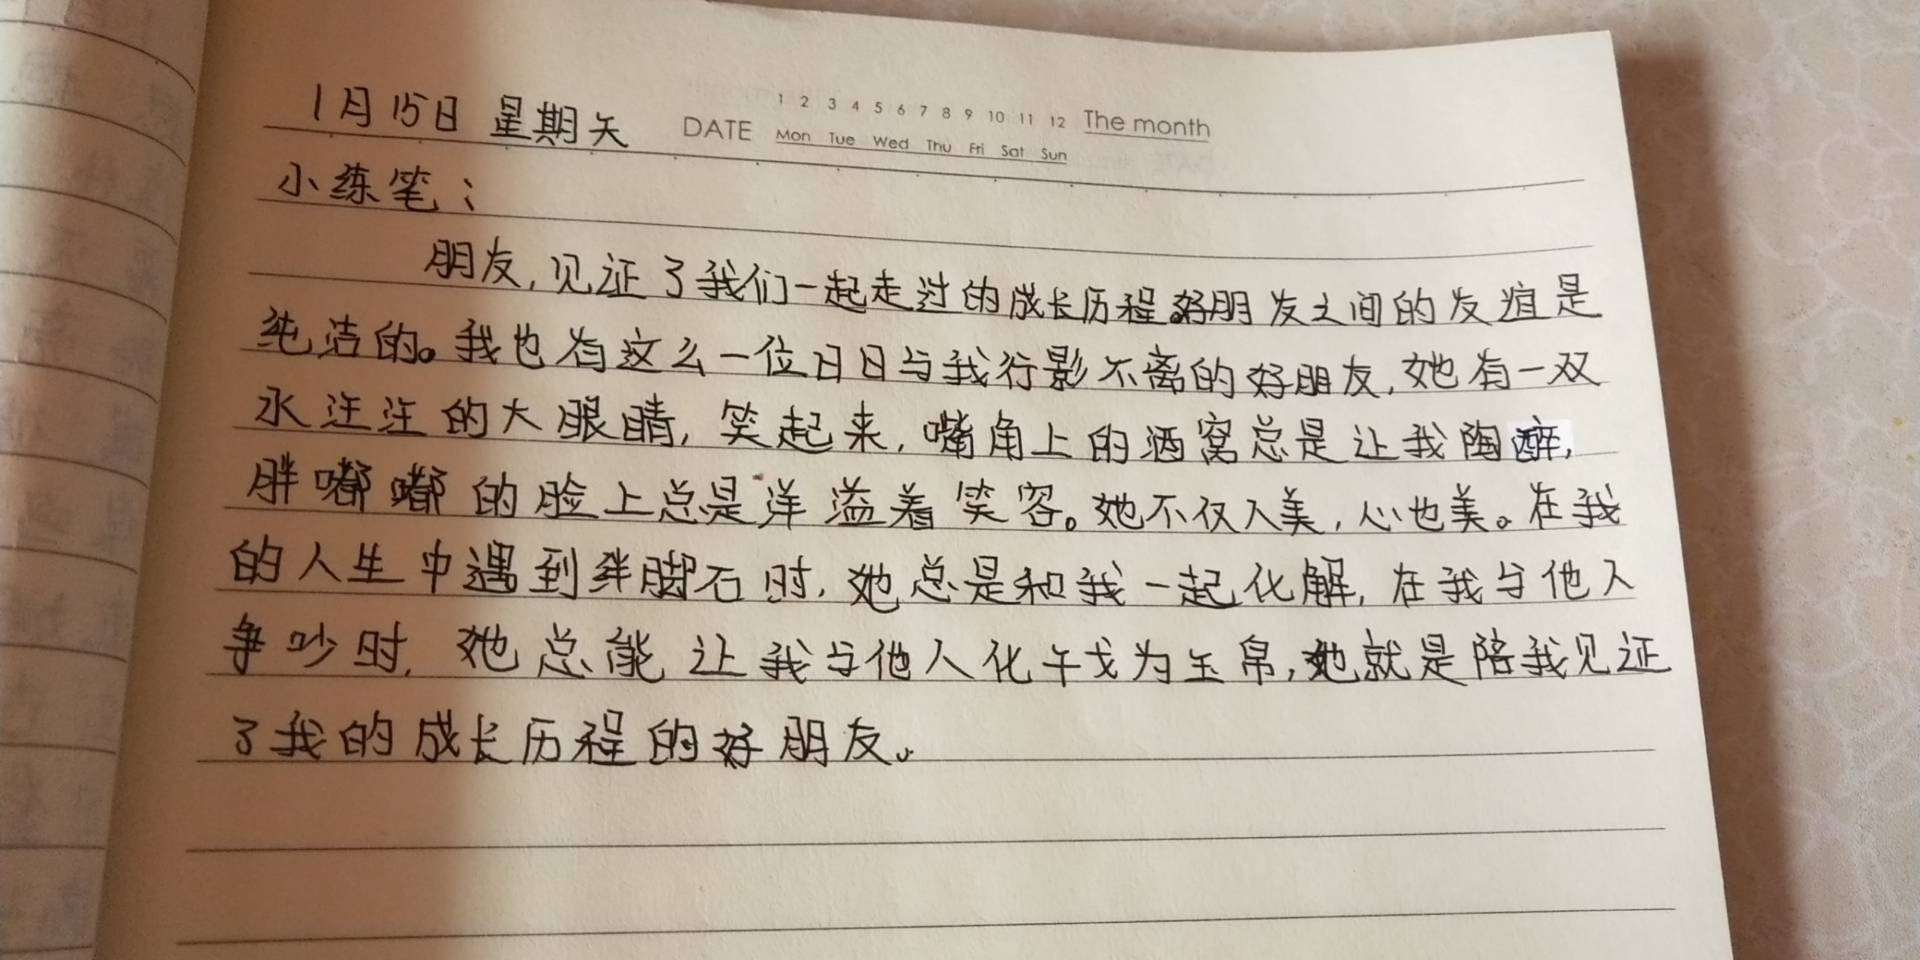 1月15日 星期天
1 2 3 4 5 6 7 8 9 10 11 12 The month
DATE Mon Tue Wed Thu Fri Sat Sun
小练笔：
朋友,见证了我们一起走过的成长历程。好朋友之间的友谊是
纯洁的。我也有这么一位日日与我行影不离的好朋友,她有一双
水汪汪的大眼睛,笑起来,嘴角上的酒窝总是让我陶醉,
胖嘟嘟的脸上总是洋溢着笑容。她不仅人美,心也美。在我
的人生中遇到绊脚石时,她总是和我一起化解,在我与他人
争吵时,她总能让我与他人化干戈为玉帛,她就是陪我见证
了我的成长历程的好朋友。